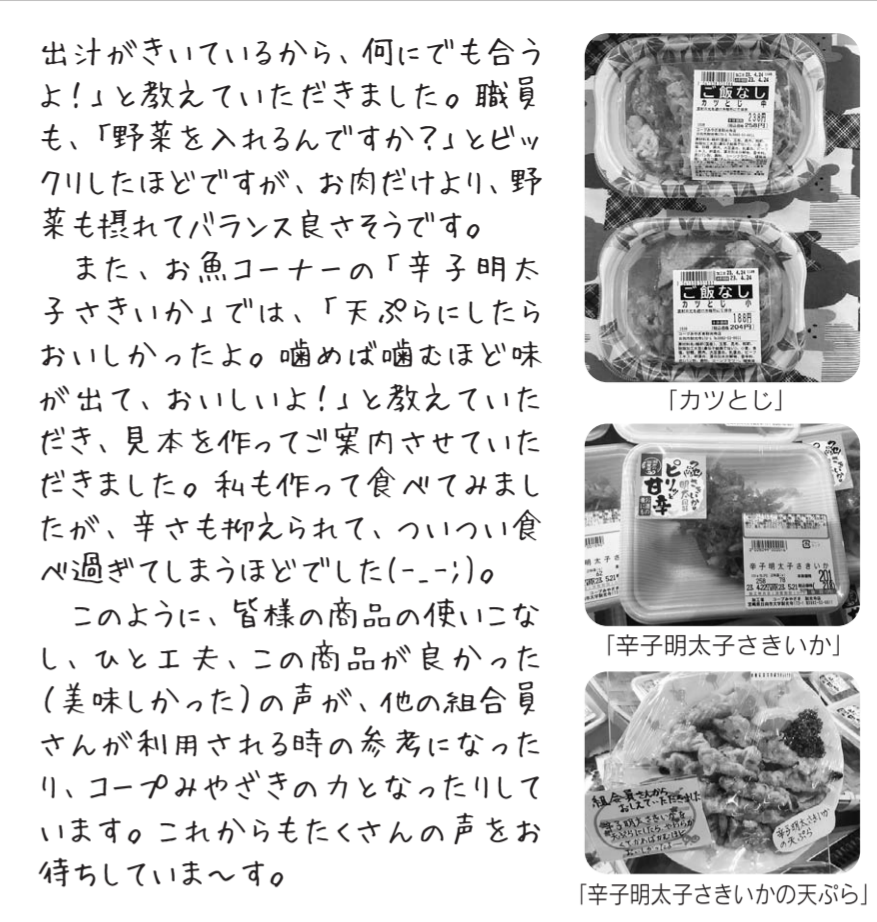 出汁がきいているから、何にでも合う
よ!」と教えていただきました。職員
も、「野菜を入れるんですか?」とビッ
クリしたほどですが、お肉だけより、野
菜も摂れてバランス良さそうです。
また、お魚コーナーの「辛子明太
子さきいか」では、「天ぷらにしたら
おいしかったよ。噛めば噛むほど味
が出て、おいしいよ!」と教えていた
だき、見本を作ってご案内させていた
だきました。私も作って食べてみまし
たが、辛さも抑えられて、ついつい食
べ過ぎてしまうほどでした(-_-;)。
このように、皆様の商品の使いこな
し、ひと工夫、この商品が良かった
(美味しかった)の声が、他の組合員
さんが利用される時の参考になった
り、コープみやざきの力となったりして
います。これからもたくさんの声をお
待ちしていま～す。
ご飯なし
カツとじ 中
238円
ご飯なし
カツとじ 小
188円
204円
「カツとじ」
ピリッと
甘辛
辛子明太子さきいか
「辛子明太子さきいか」
組合員さんから
おしえていただきました
辛子明太子さきいか
の天ぷら
「辛子明太子さきいかの天ぷら」